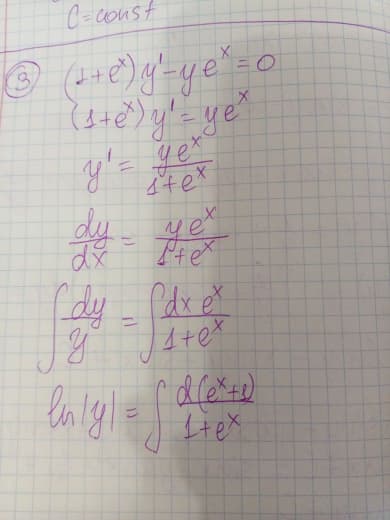 C=const
③ (1+eˣ)y'-yeˣ=0
(1+eˣ)y'=yeˣ
y'= yeˣ/1+eˣ
dy/dx = yeˣ/1+eˣ
∫ dy/y = ∫ dx eˣ/1+eˣ
ln|y| = ∫ d(eˣ+1)/1+eˣ